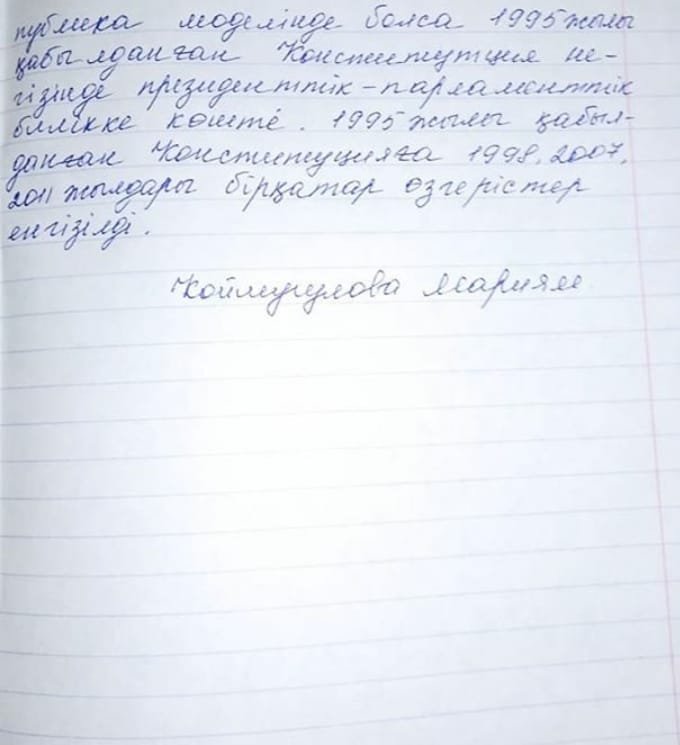 публика моделінде болса 1995 жылы
қабылданған Конституция не-
гізінде президенттік-парламенттік
билікке көшті. 1995 жылы қабыл-
данған Конституцияға 1998, 2007,
2011 жылдары бірқатар өзгерістер
енгізілді.
Коймугулова Мариям